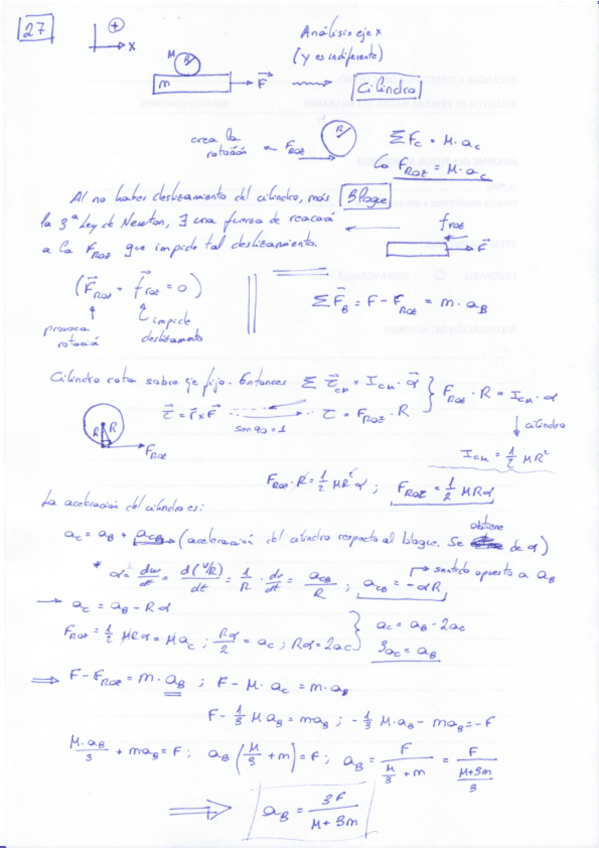 27
+
x
Análisis eje x
(y es indiferente)
M
R
m
F⃗
Cilindro
crea la rotación
F_ROZ
R
ΣF_C = M·a_C
↳ F_ROZ = M·a_C
Al no haber deslizamiento del cilindro, más
Bloque
la 3ª Ley de Newton, ∃ una fuerza de reacción
a la F_ROZ que impide tal deslizamiento.
f_roz
F⃗
(F⃗_Roz + f⃗_roz = 0)
provoca rotación
impide deslizamiento
ΣF⃗_B = F - F_roz = m·a_B
Cilindro rota sobre eje fijo. Entonces Σ τ⃗_CM = I_CM · α⃗ } F_Roz · R = I_CM · α
τ⃗ = r⃗ x F⃗
sen 90 = 1
τ = F_Roz · R
R R
F_Roz
↓ cilindro
I_CM = 1/2 MR²
F_Roz · R = 1/2 MR²α ; F_ROZ = 1/2 MRα
La aceleración del cilindro es:
a_C = a_B + a_CB → (aceleración del cilindro respecto al bloque. Se obtiene de α)
* α = dω/dt = d(v/R)/dt = 1/R · dv/dt = a_CB/R ; a_CB = -αR
→ sentido opuesto a a_B
→ a_C = a_B - Rα
F_ROZ = 1/2 MRα = Ma_C ; Rα/2 = a_C ; Rα = 2a_C
a_C = a_B - 2a_C
3a_C = a_B
⇒ F - F_ROZ = m·a_B ; F - M·a_C = m·a_B
F - 1/3 M a_B = m a_B ; -1/3 M·a_B - m a_B = -F
M·a_B/3 + m a_B = F ; a_B (M/3 + m) = F ; a_B = F/(M/3 + m) = F/((M+3m)/3)
⇒ a_B = 3F/(M+3m)